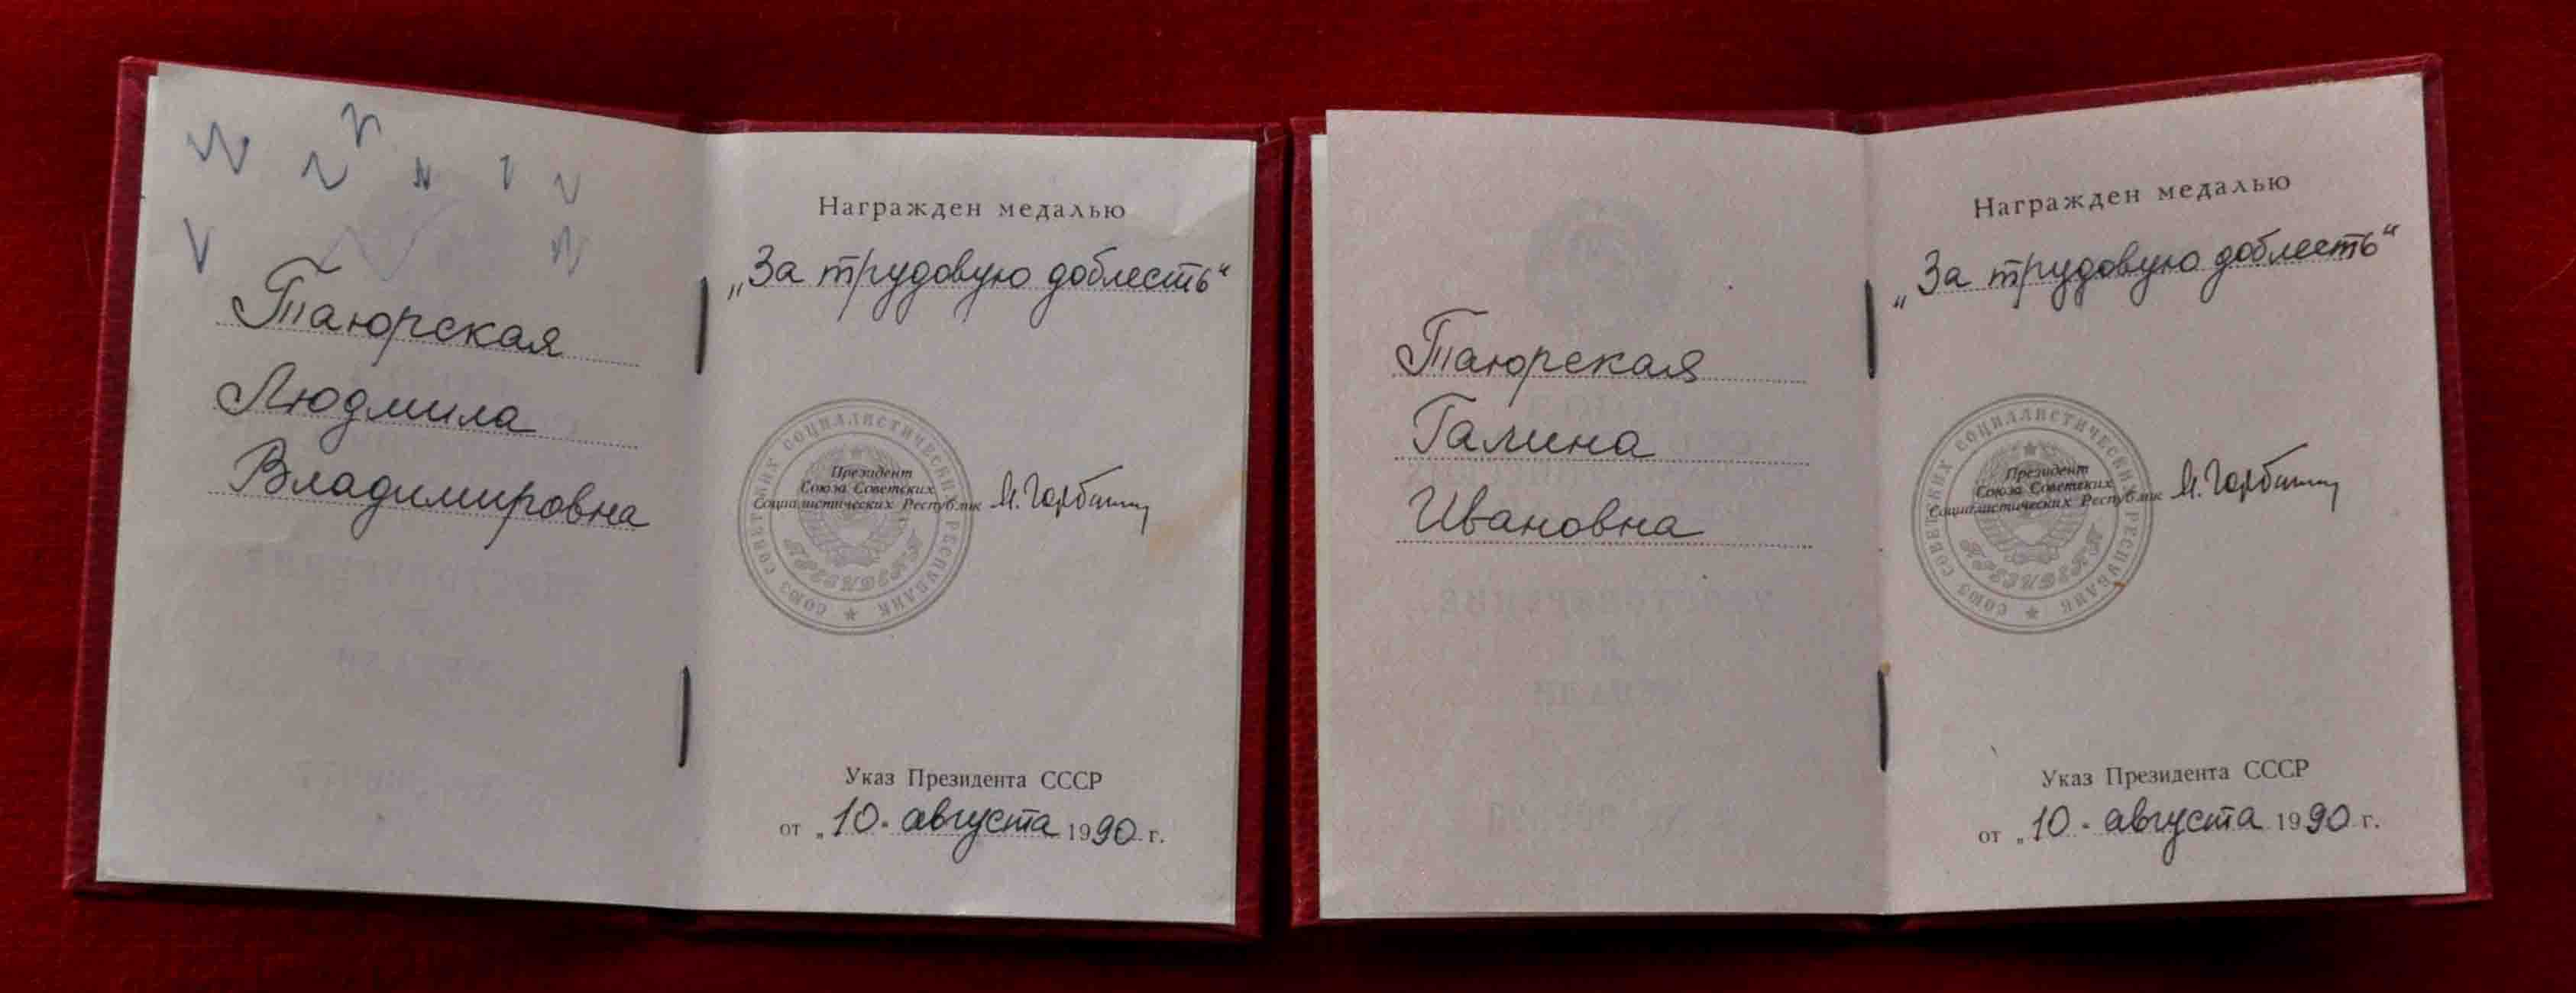 Таюрская
Людмила
Владимировна
Награжден медалью
„За трудовую доблесть“
СОЮЗ СОВЕТСКИХ СОЦИАЛИСТИЧЕСКИХ РЕСПУБЛИК
Президент
Союза Советских
Социалистических Республик М. Горбачев
ПРЕЗИДЕНТ
Указ Президента СССР
от „10" августа 1990 г.
Таюрская
Галина
Ивановна
Награжден медалью
„За трудовую доблесть“
СОЮЗ СОВЕТСКИХ СОЦИАЛИСТИЧЕСКИХ РЕСПУБЛИК
Президент
Союза Советских
Социалистических Республик М. Горбачев
ПРЕЗИДЕНТ
Указ Президента СССР
от „10" августа 1990 г.